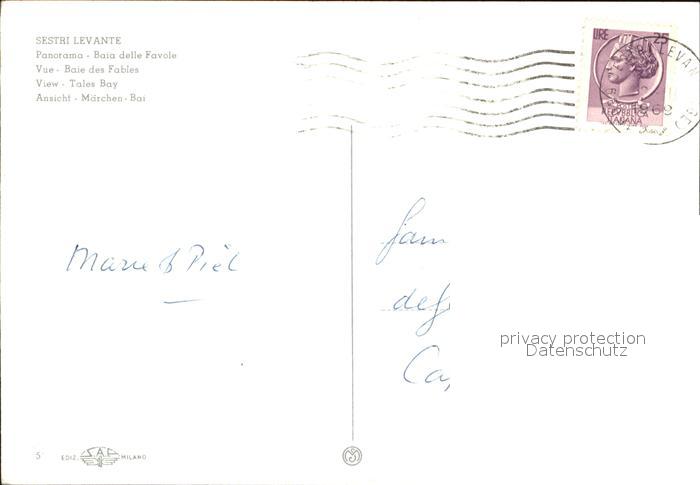 SESTRI LEVANTE
Panorama - Baia delle Favole
Vue - Baie des Fables
View - Tales Bay
Ansicht - Märchen-Bai
LIRE 25
REPUBBLICA
ITALIANA
Fam
privacy protection
Datenschutz
Ca,
5
EDIZ. S.A.F. MILANO